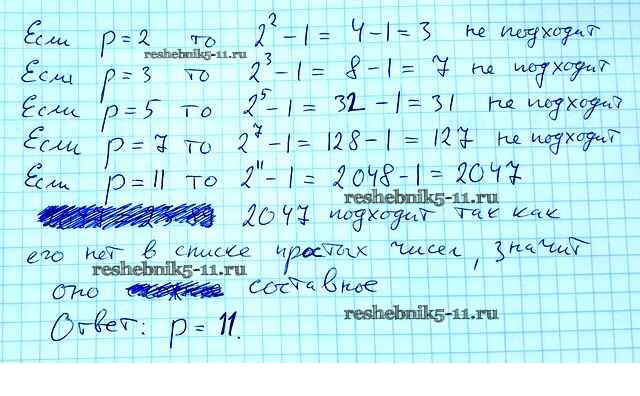 Если p = 2 то 2² - 1 = 4 - 1 = 3 не подходит
reshebnik5-11.ru
Если p = 3 то 2³ - 1 = 8 - 1 = 7 не подходит
Если p = 5 то 2⁵ - 1 = 32 - 1 = 31 не подходит
Если p = 7 то 2⁷ - 1 = 128 - 1 = 127 не подходит
Если p = 11 то 2¹¹ - 1 = 2048 - 1 = 2047
reshebnik5-11.ru
2047 подходит так как
его нет в списке простых чисел, значит
reshebnik5-11.ru
оно составное
reshebnik5-11.ru
Ответ: p = 11.